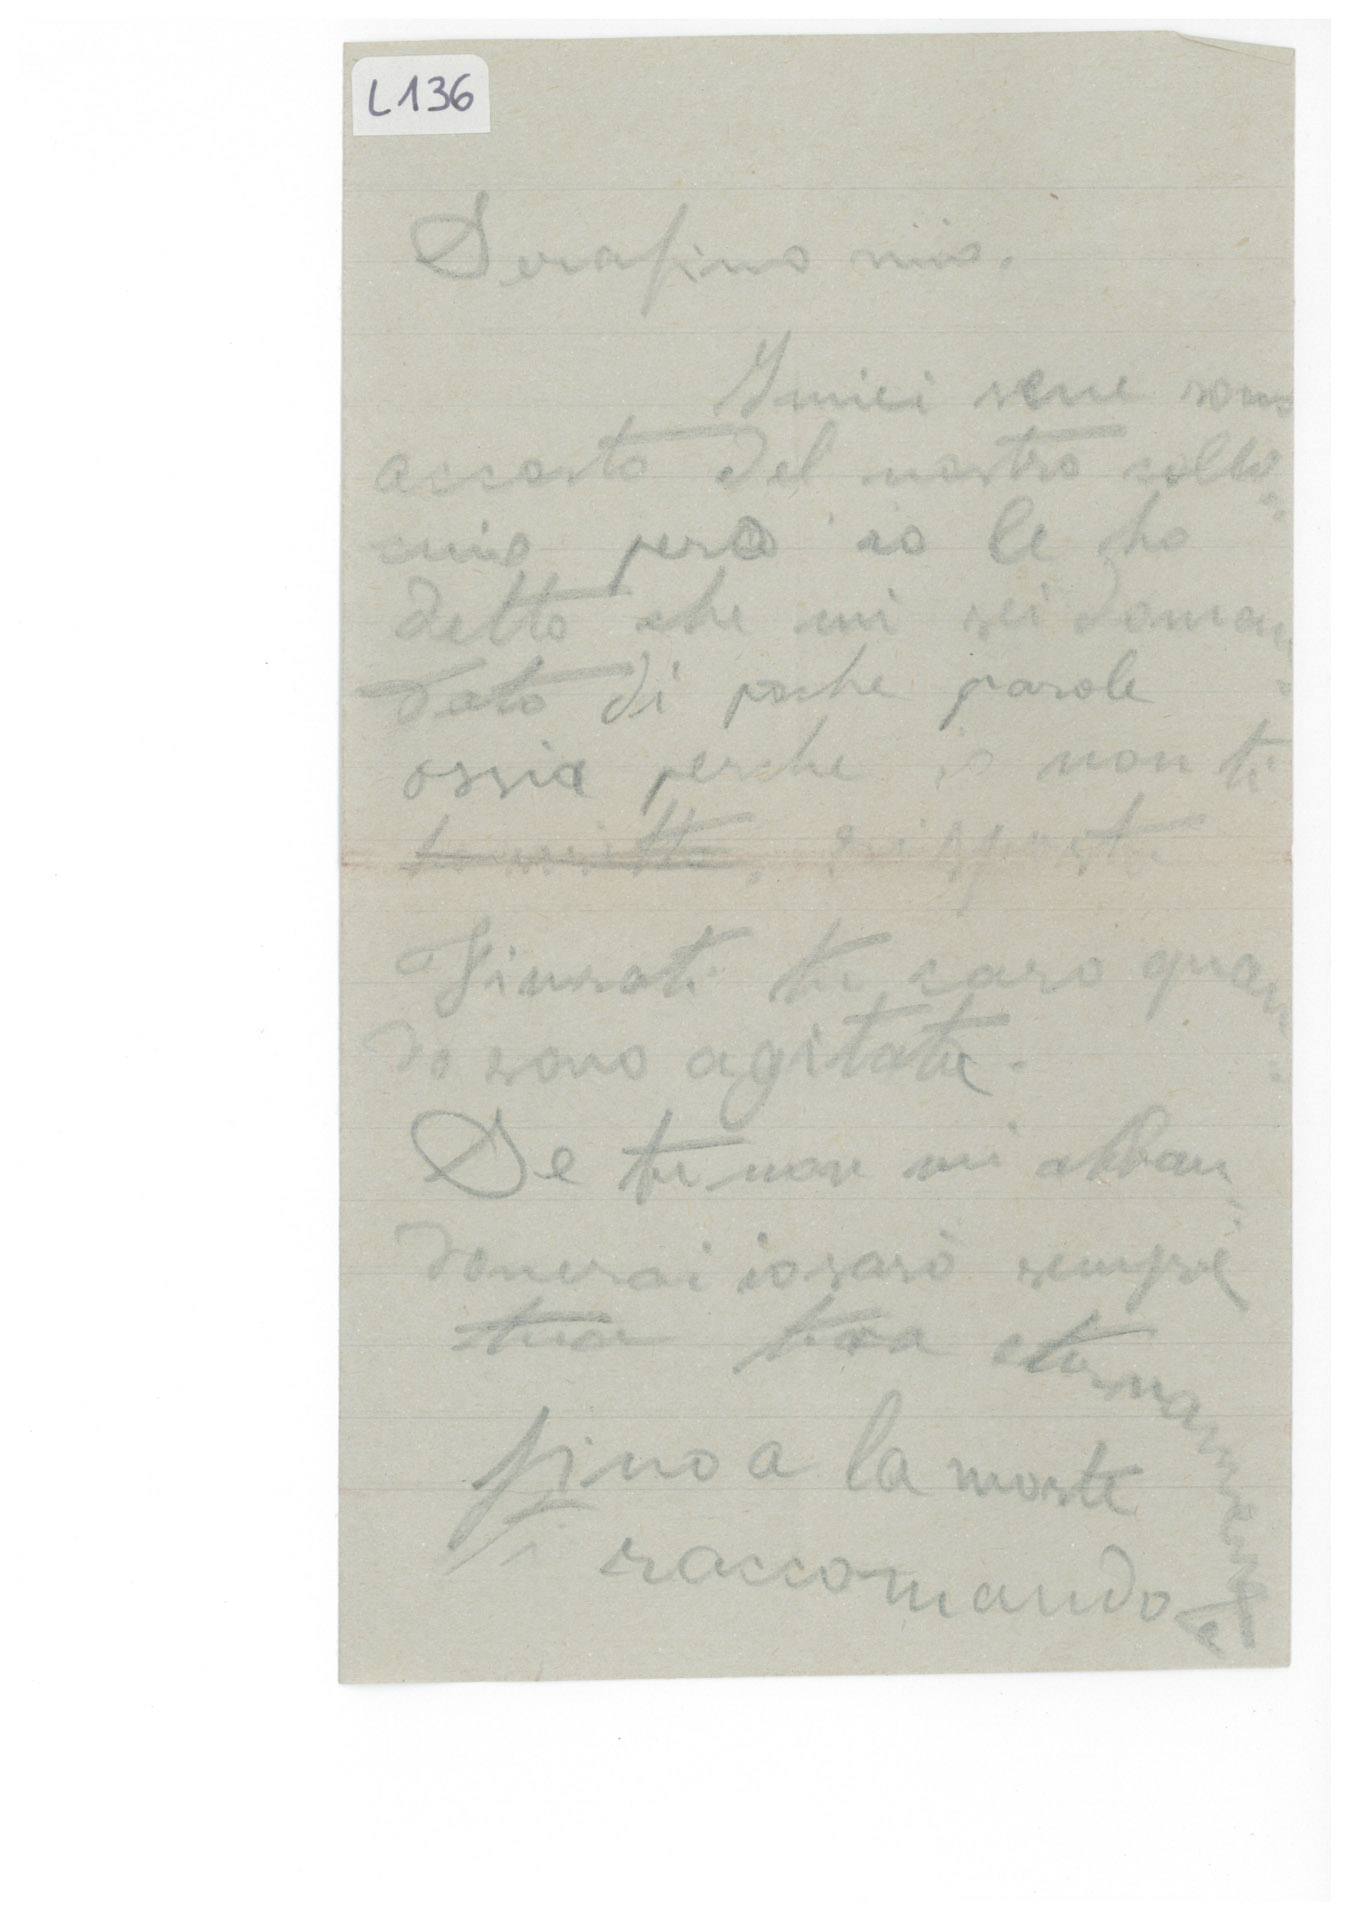 L136
Serafino mio.
I miei sene sono
accorto del nostro collo-
cuio però io le ho
detto che mi sei doman-
dato di poche parole
ossia perche io non ti
risposto
Finirati tu caro quan-
do sono agitata.
Se tu non mi abban-
donerai io sarò sempre
tua tua eternamente
fino a la morte
Ti raccomando